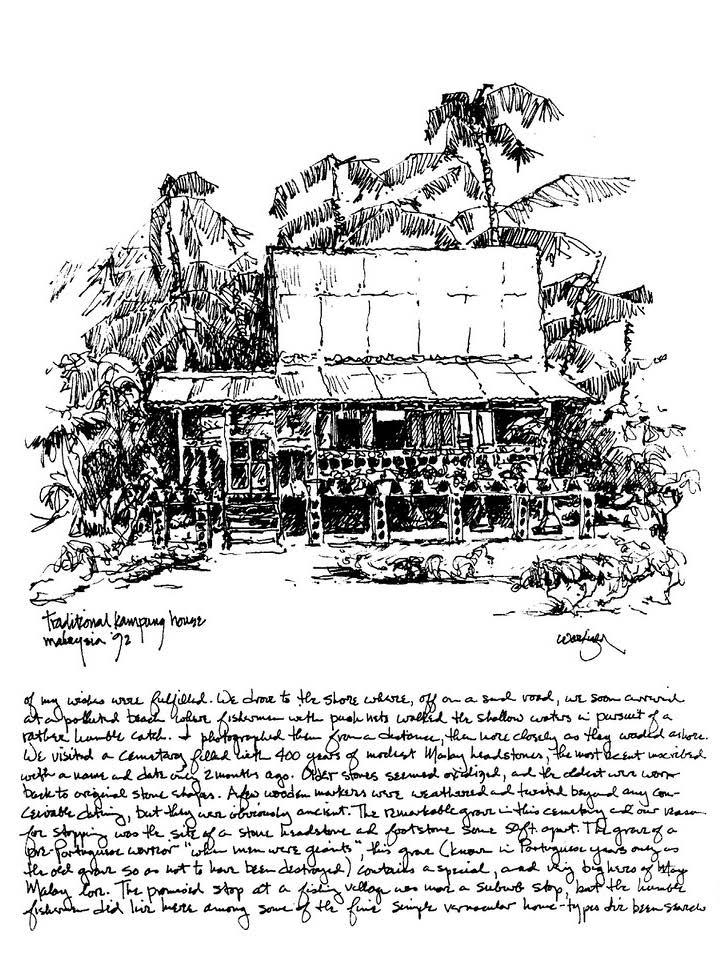 traditional kampung house
malaysia '92
of my wishes were fulfilled. We drove to the shore where, off on a sand road, we soon arrived
at a polluted beach where fishermen with push nets walked the shallow waters in pursuit of a
rather humble catch. I photographed them from a distance, then more closely as they waded ashore.
We visited a cemetary filled with 400 years of modest Malay headstones, the most recent inscribed
with a name and date only 2 months ago. Older stones seemed oxidized, and the oldest were worn
back to original stone shapes. A few wooden markers were weathered and twisted beyond any con-
ceivable dating, but they were obviously ancient. The remarkable grave in this cemetary and our reason
for stopping was the site of a stone headstone and footstone some 50 ft apart. The grave of a
pre-Portuguese warrior "when men were giants", this grave (known in Portuguese years only as
the old grave so as not to have been destroyed) contains a special, and very big hero of
Malay lore. The promised stop at a fishing village was more a suburb stop, but the humble
fishermen did live here among some of the fine simple vernacular home-types I've been